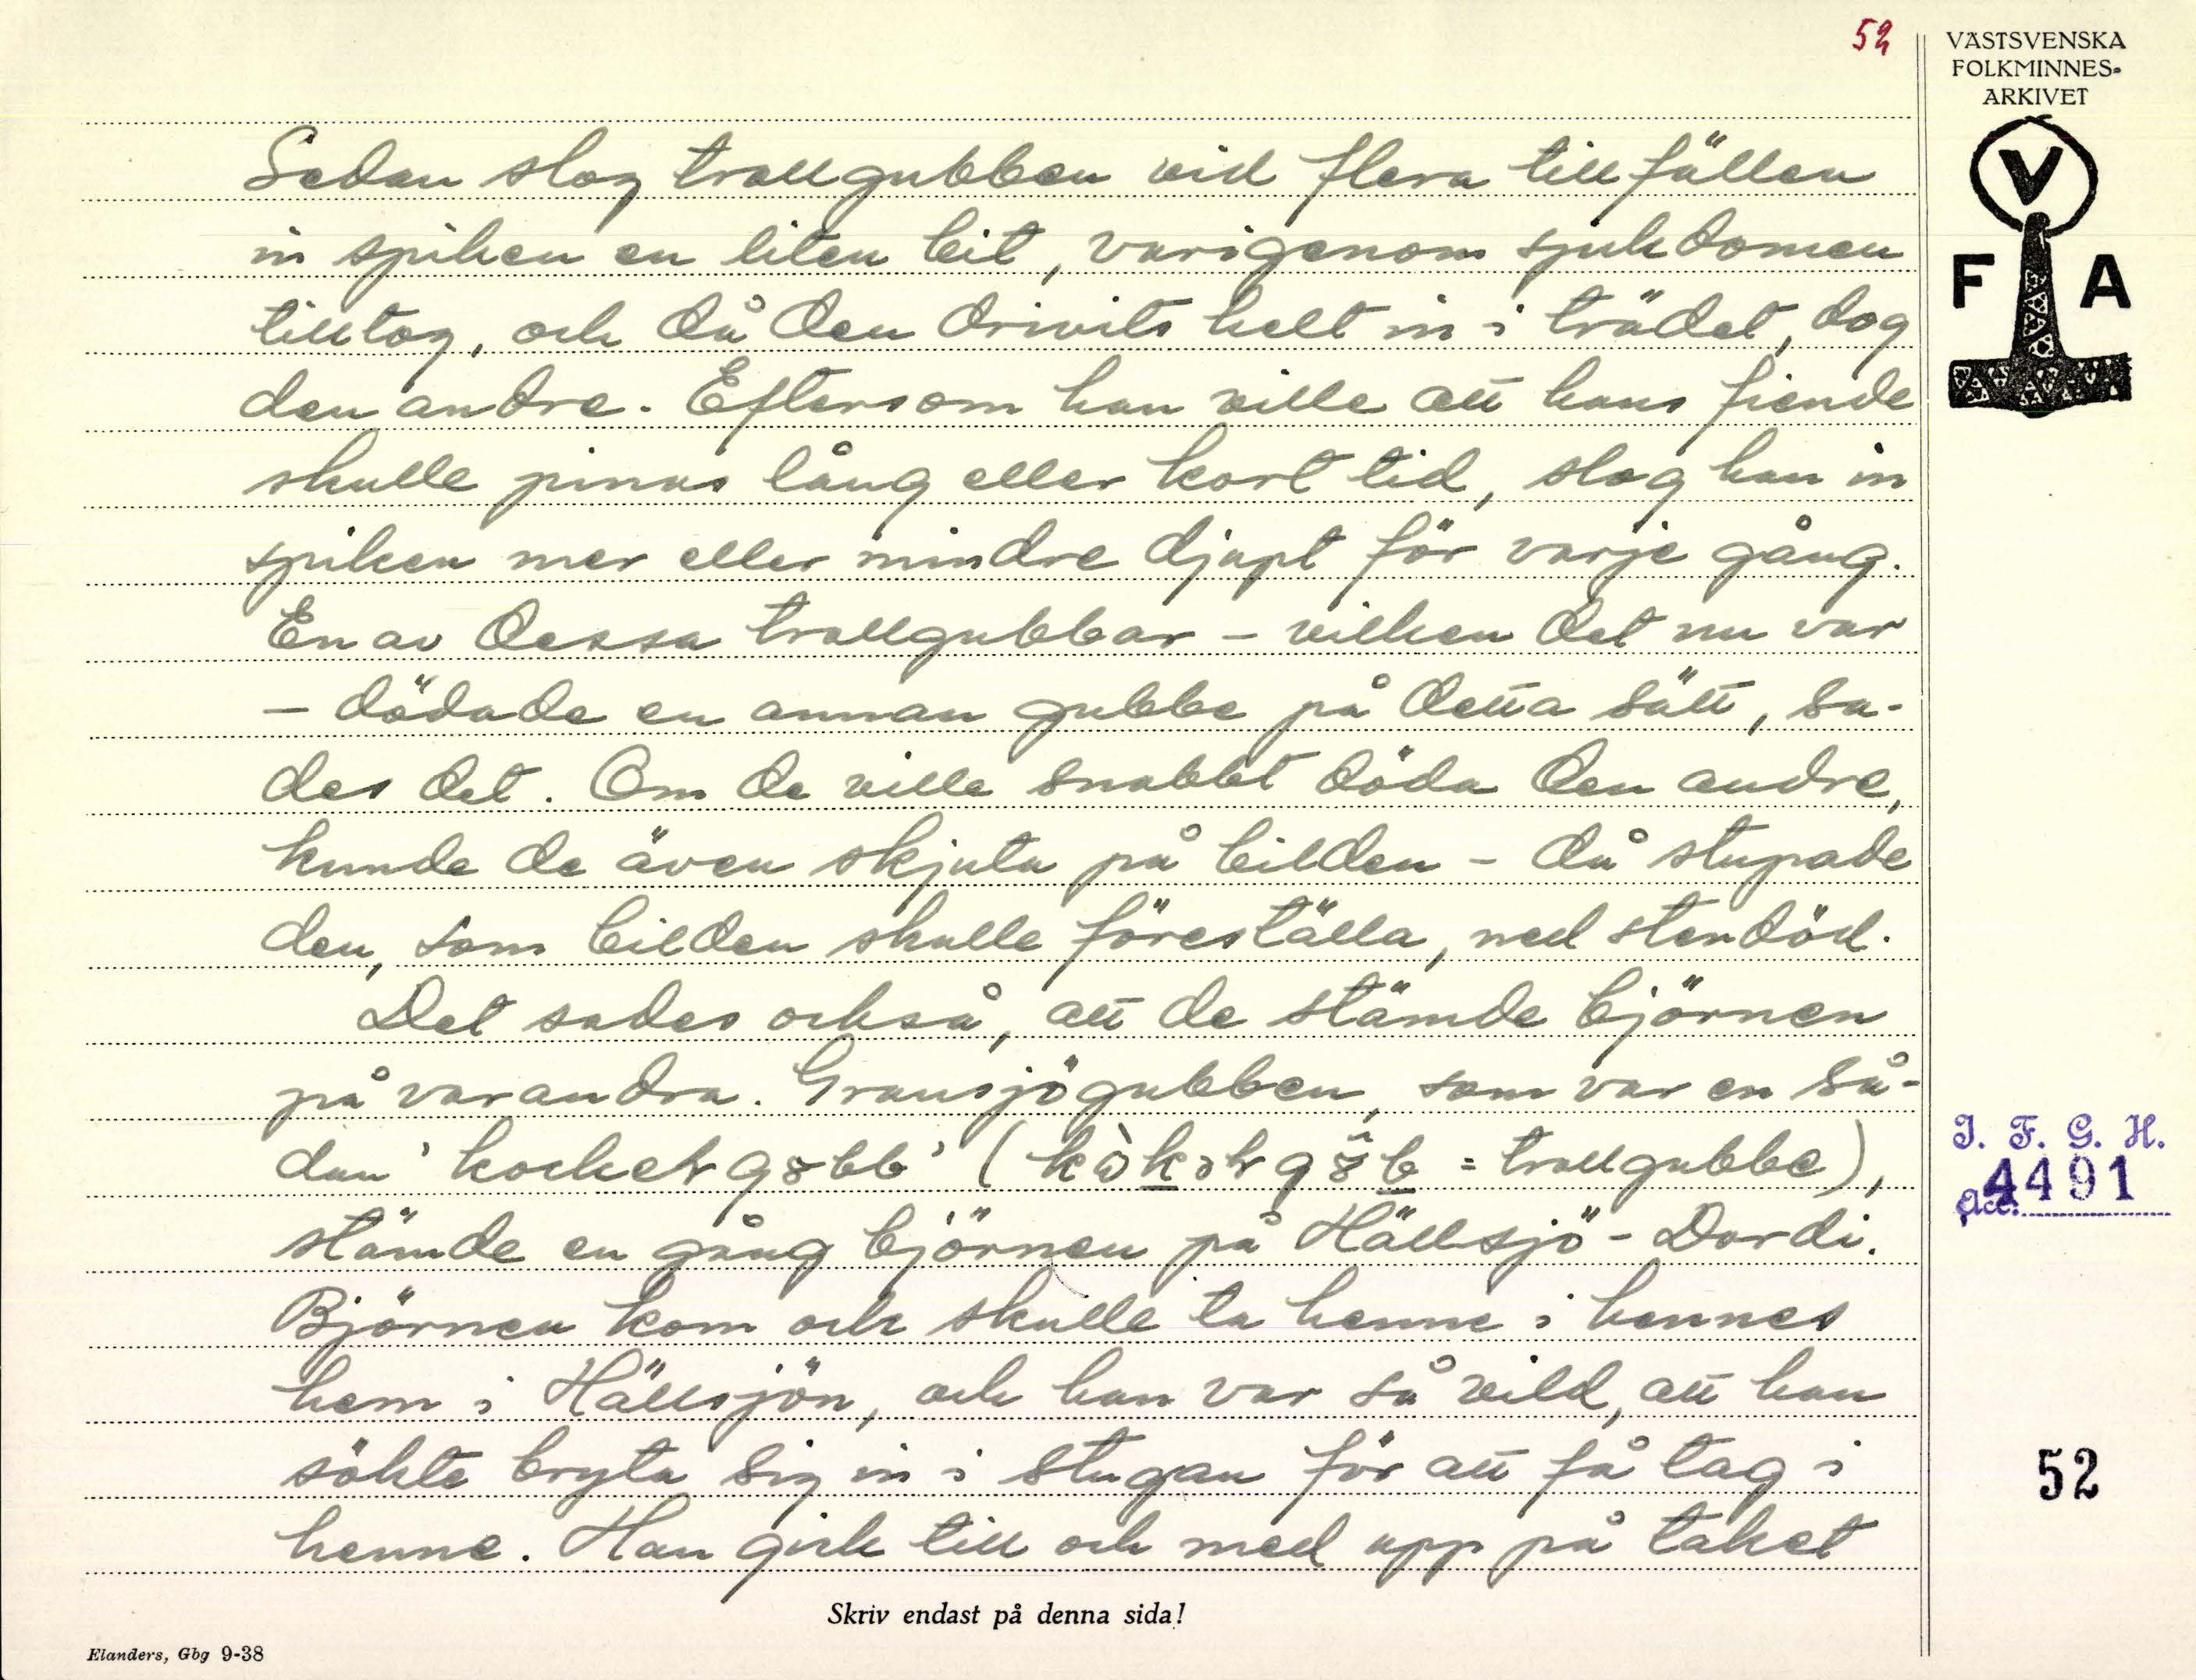 52
VÄSTSVENSKA
FOLKMINNES-
ARKIVET
V
F A
Sedan slog trollgubben vid flera tillfällen
in spiken en liten bit, varigenom sjukdomen
tilltog, och då den drivits helt in i trädet, dog
den andre. Eftersom han ville att hans fiende
skulle pinas lång eller kort tid, slog han in
spiken mer eller mindre djupt för varje gång.
En av dessa trollgubbar – vilken det nu var
– dödade en annan gubbe på detta sätt, sa-
des det. Om de ville snabbt döda den andre,
kunde de även skjuta på bilden – då stupade
den, som bilden skulle föreställa, ned stendöd.
Det sades också, att de stämde björnen
på varandra. Gransjögubben, som var en så-
dan (= trollgubbe),
stämde en gång björnen på Hällsjö-Dordi.
Björnen kom och skulle ta henne i hennes
hem i Hällsjön, och han var så vild, att han
sökte bryta sig in i stugan för att få tag i
henne. Han gick till och med upp på taket
I. F. G. H.
Acc. 4491
52
Skriv endast på denna sida!
Elanders, Gbg 9-38